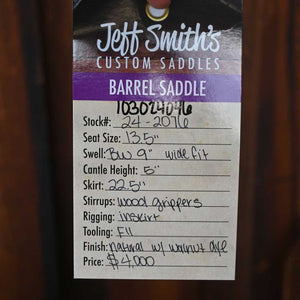 Jeff Smith's
CUSTOM SADDLES
BARREL SADDLE
103024046
Stock#: 24-2076
Seat Size: 13.5"
Swell: BW 9" wide fit
Cantle Height: 5"
Skirt: 22.5"
Stirrups: wood grippers
Rigging: inskirt
Tooling: F11
Finish: natural w/ walnut dye
Price: $4,000